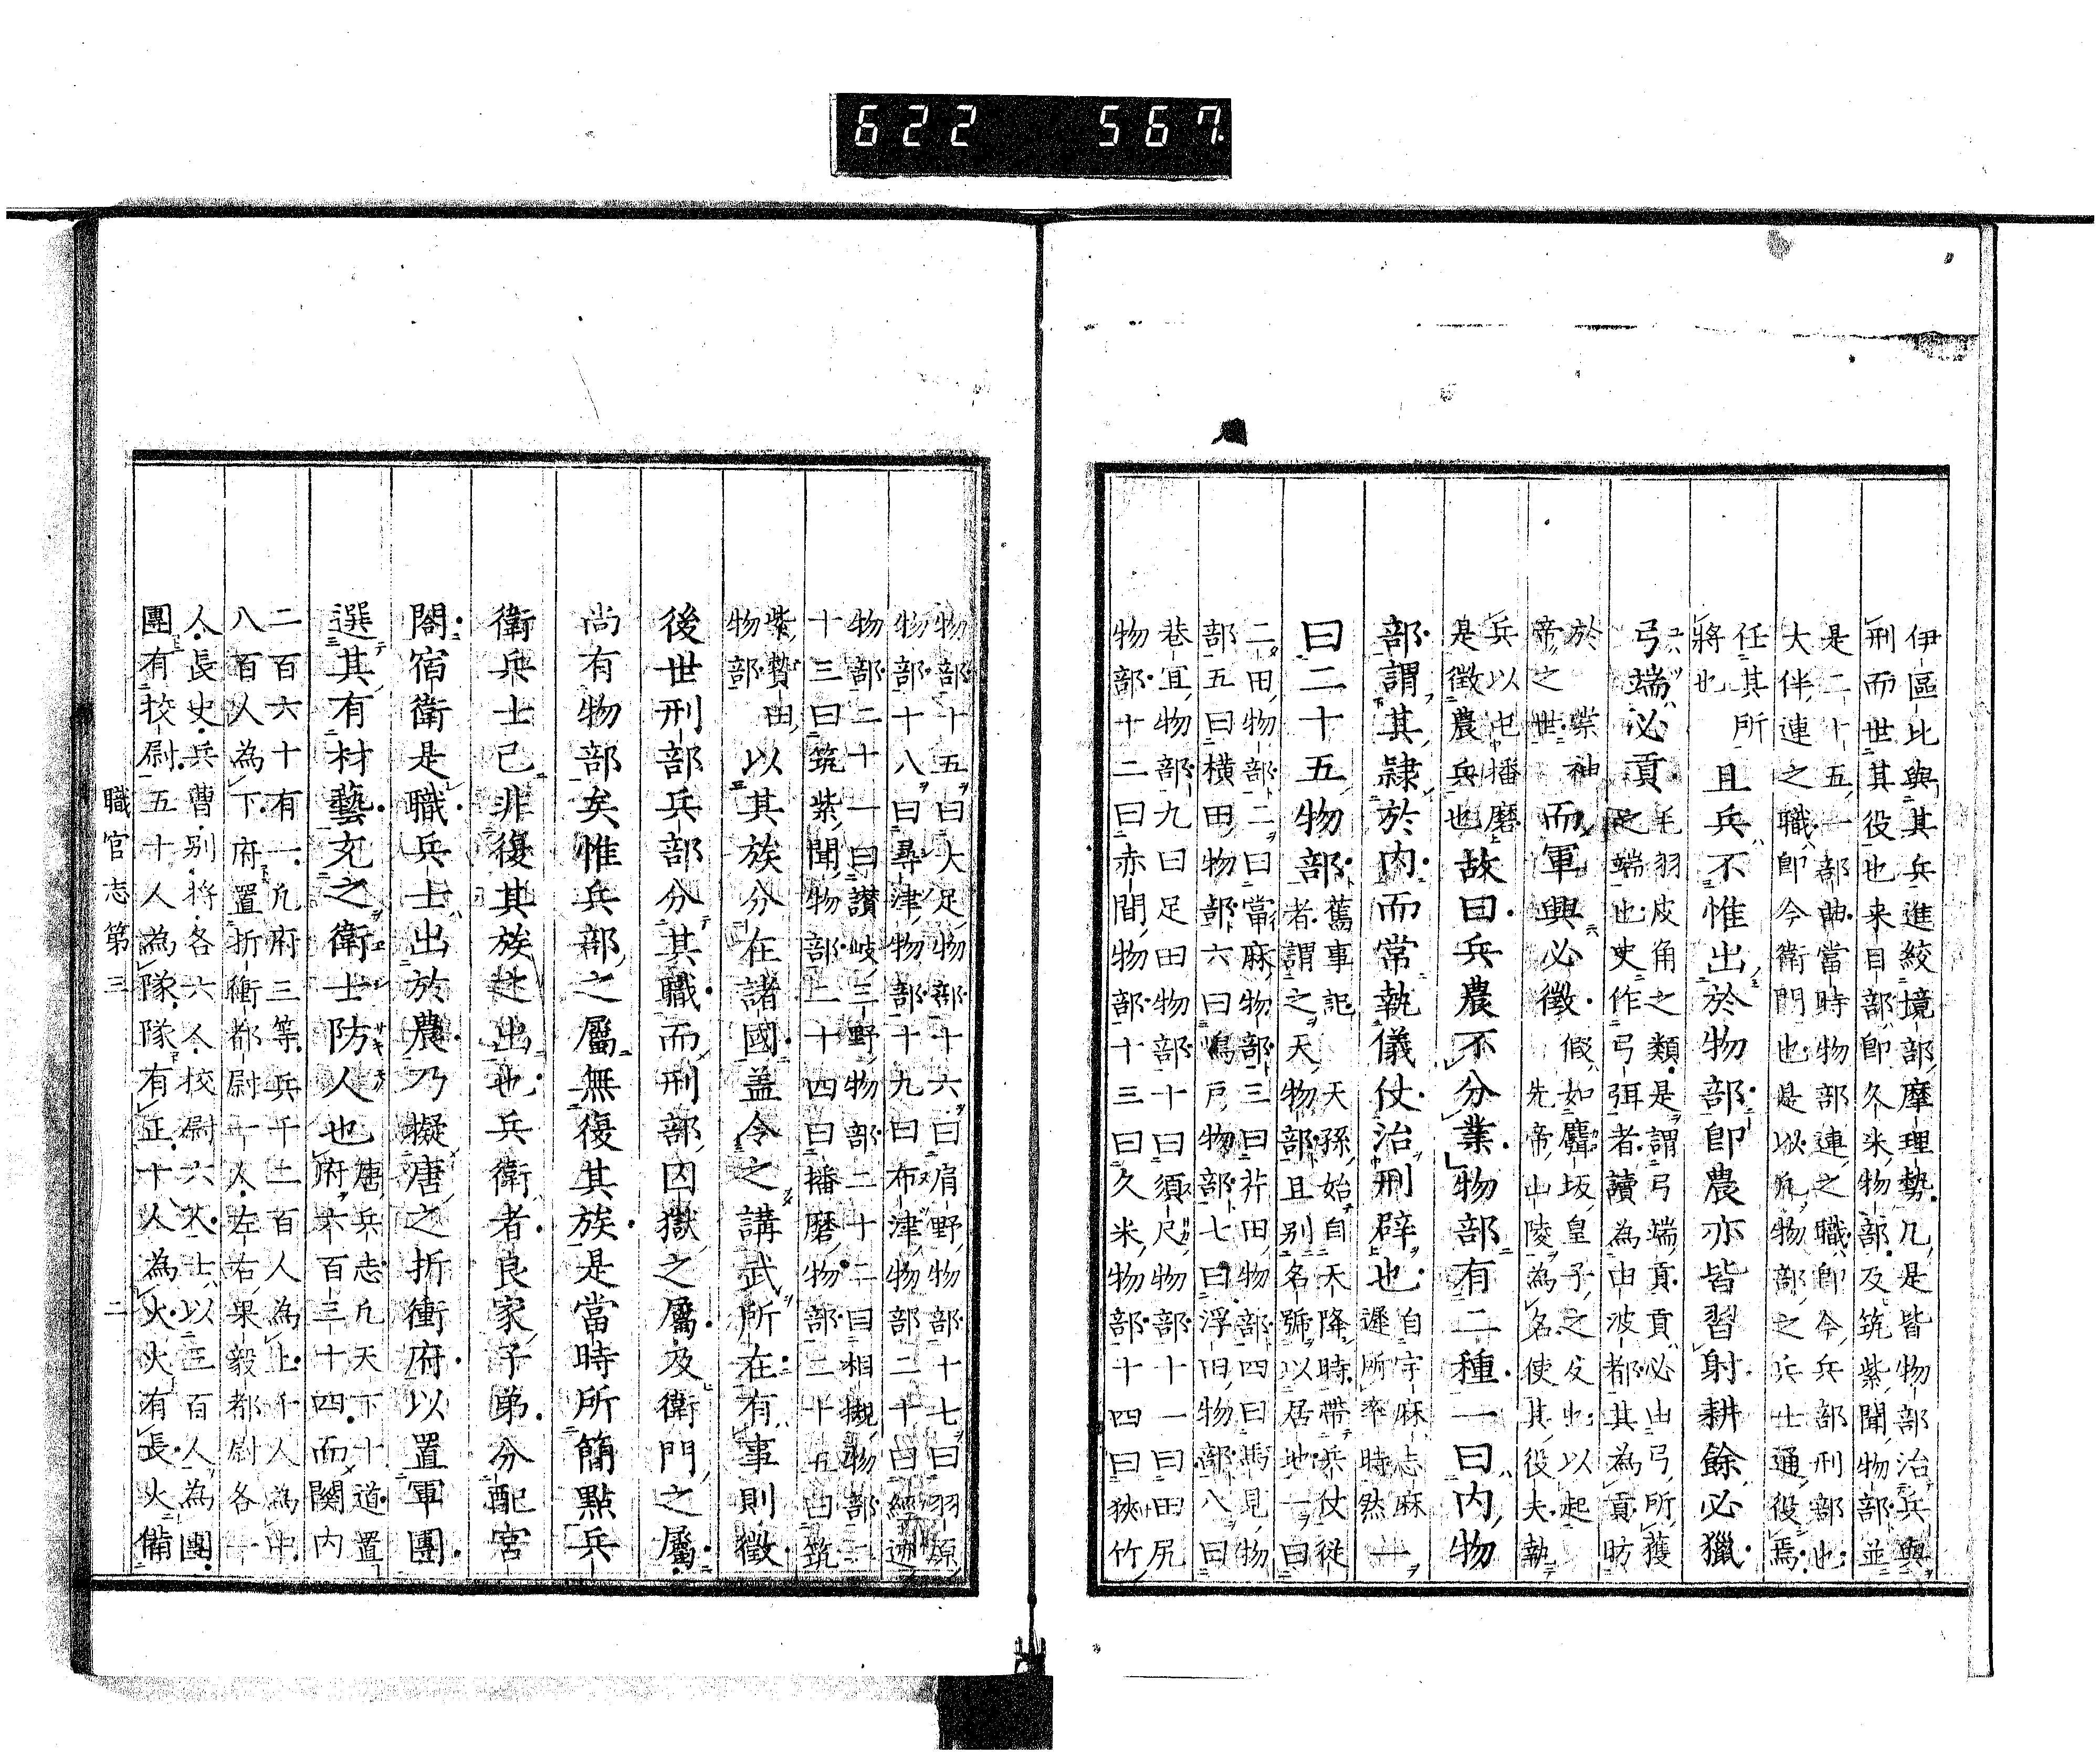 622 567
伊區比與其兵進絞境部摩理勢凡是皆物部治兵與
刑而世其役也来目部即久米物部及筑紫聞物部並
是二十五一部曲當時物部連之職即今兵部刑部也
大伴連之職即今衛門也是以凡物部之兵士通役焉
任其所
將也
且兵不惟出於物部即農亦皆習射耕餘必獵
弓端必貢
毛羽皮角之類是謂弓端貢貢必由弓所獲
之端也史作弓弭者讀為由波都其為貢昉
於崇神
帝之世
而軍興必徵
假如麛坂皇子之反也以起
先帝山陵為名使其役夫執
兵以屯播磨
是徵農兵也
故曰兵農不分業物部有二種一曰内物
部謂其隷於内而常執儀仗治刑辟也
自宇麻志麻
遲所率時然
一
曰二十五物部
舊事記天孫始自天降時帶兵仗從
者謂之天物部且别名號以居地一曰
二田物部二曰當麻物部三曰芹田物部四曰馬見物
部五曰横田物部六曰嶋戸物部七曰浮田物部八曰
巷宜物部九曰足田物部十曰須尺物部十一曰田尻
物部十二曰赤間物部十三曰久米物部十四曰狹竹
物部十五曰大足物部十六曰肩野物部十七曰羽原
物部十八曰尋津物部十九曰布津物部二十曰經迹
物部二十一曰讃岐三野物部二十二曰相槻物部二
十三曰筑紫聞物部二十四曰播磨物部二十五曰筑
紫贄田
物部
以其族分在諸國盖令之講武所在有事則徵
後世刑部兵部分其職而刑部囚獄之屬及衛門之屬
尚有物部矣惟兵部之屬無復其族是當時所簡點兵
衛兵士已非復其族赴出也兵衛者良家子弟分配宮
閤宿衛是職兵士出於農乃擬唐之折衝府以置軍團
選其有材藝充之衛士防人也
唐兵志凡天下十道置
府六百三十四而關内
二百六十有一凡府三等兵千二百人為上千人為中
八百人為下府置折衝都尉一人左右果毅都尉各一
人長史兵曹别将各六人校尉六人士以三百人為團
團有校尉五十人為隊隊有正十人為火火有長火備
職官志第三
二